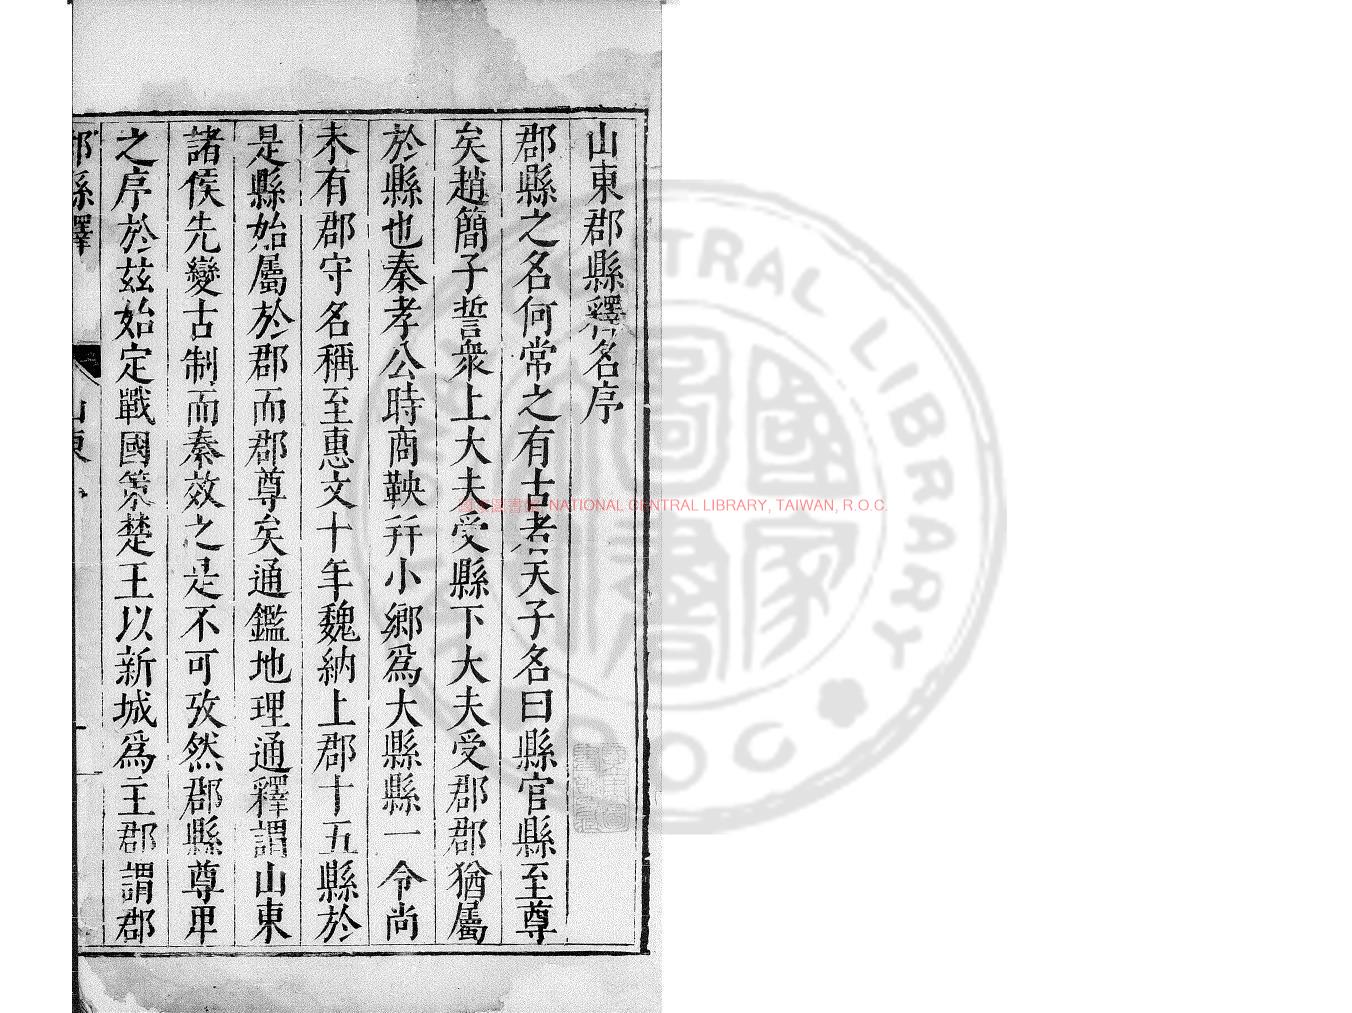 山東郡縣釋名序
郡縣之名何常之有古者天子名曰縣官縣至尊
矣趙簡子誓衆上大夫受縣下大夫受郡郡猶屬
於縣也秦孝公時商鞅幷小鄉爲大縣縣一令尚
未有郡守名稱至惠文十年魏納上郡十五縣於
是縣始屬於郡而郡尊矣通鑑地理通釋謂山東
諸侯先變古制而秦效之是不可攷然郡縣尊卑
之序於茲始定戰國策楚王以新城爲主郡謂郡
郡縣釋
山東
國家圖書館 NATIONAL CENTRAL LIBRARY, TAIWAN, R.O.C.